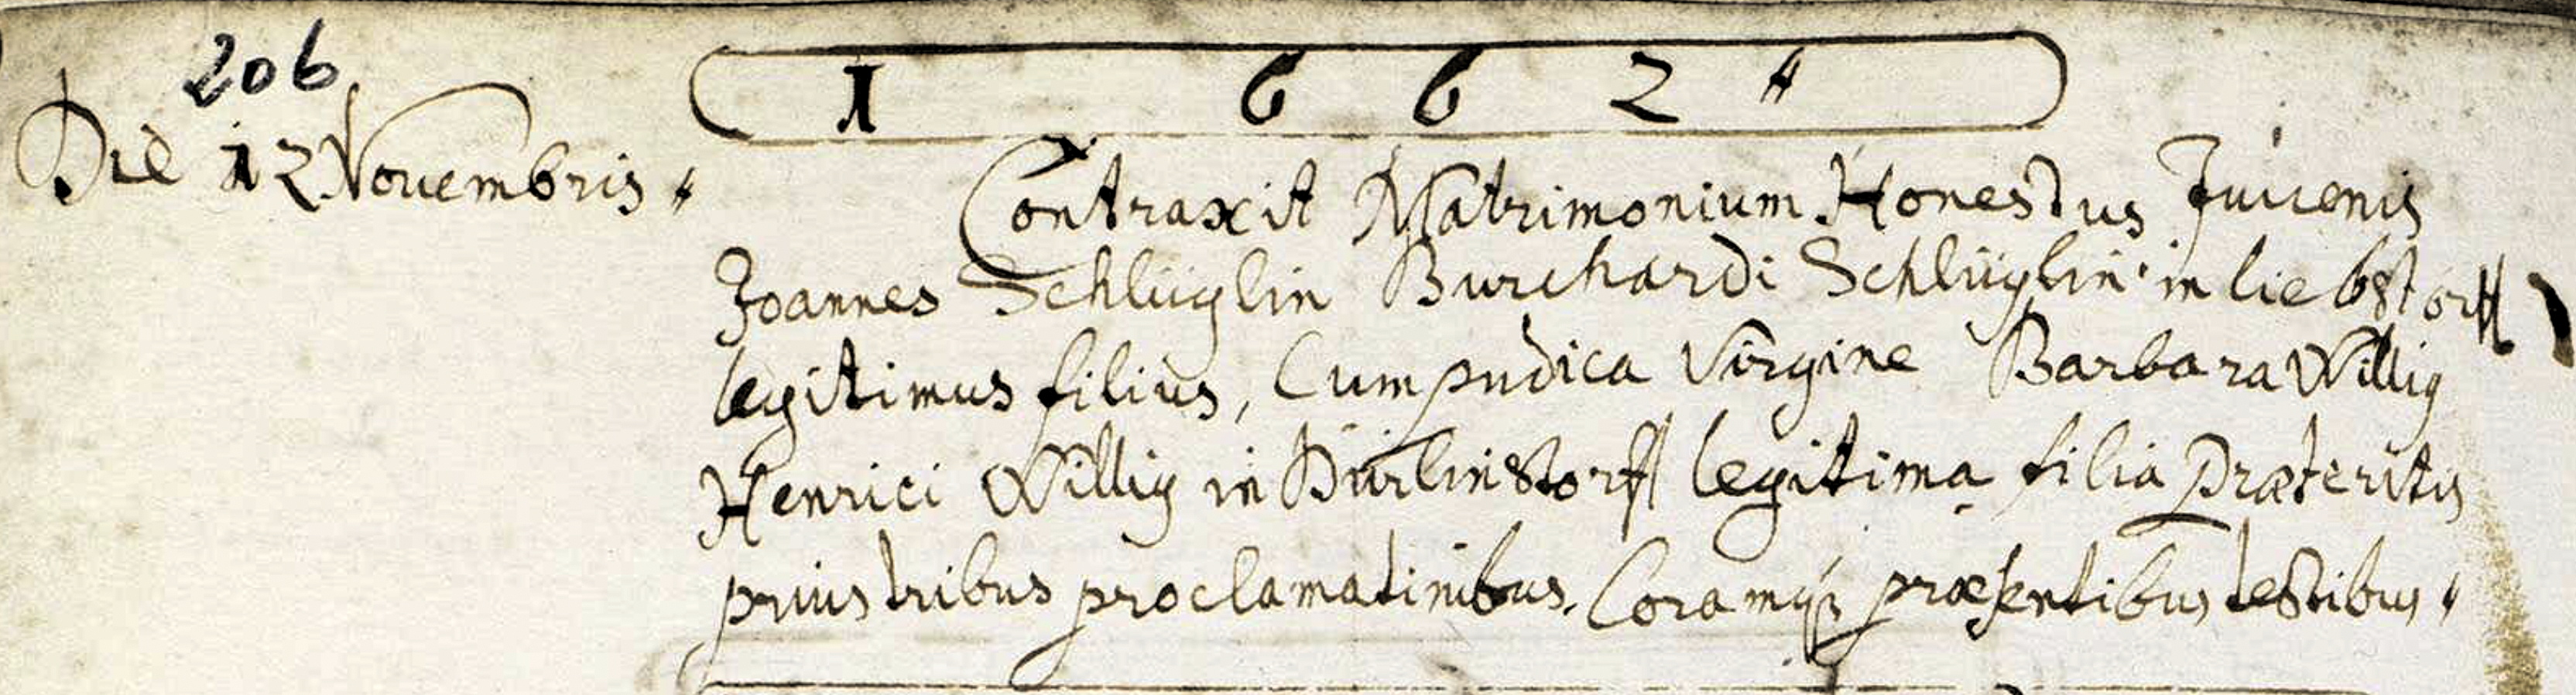 206
1 6 6 2 "
Die 12 Nouembris "
Contraxit Matrimonium Honestus Juuenis
Joannes Schlüglin Burchardi Schlüglin in liebstorff
legitimus filius, Cum pudica Virgine Barbara Willig
Henrici Willig in Dürlinstorff legitima filia Præteritis
prius tribus proclamatinibus. Coramq3 præsentibus testibus "